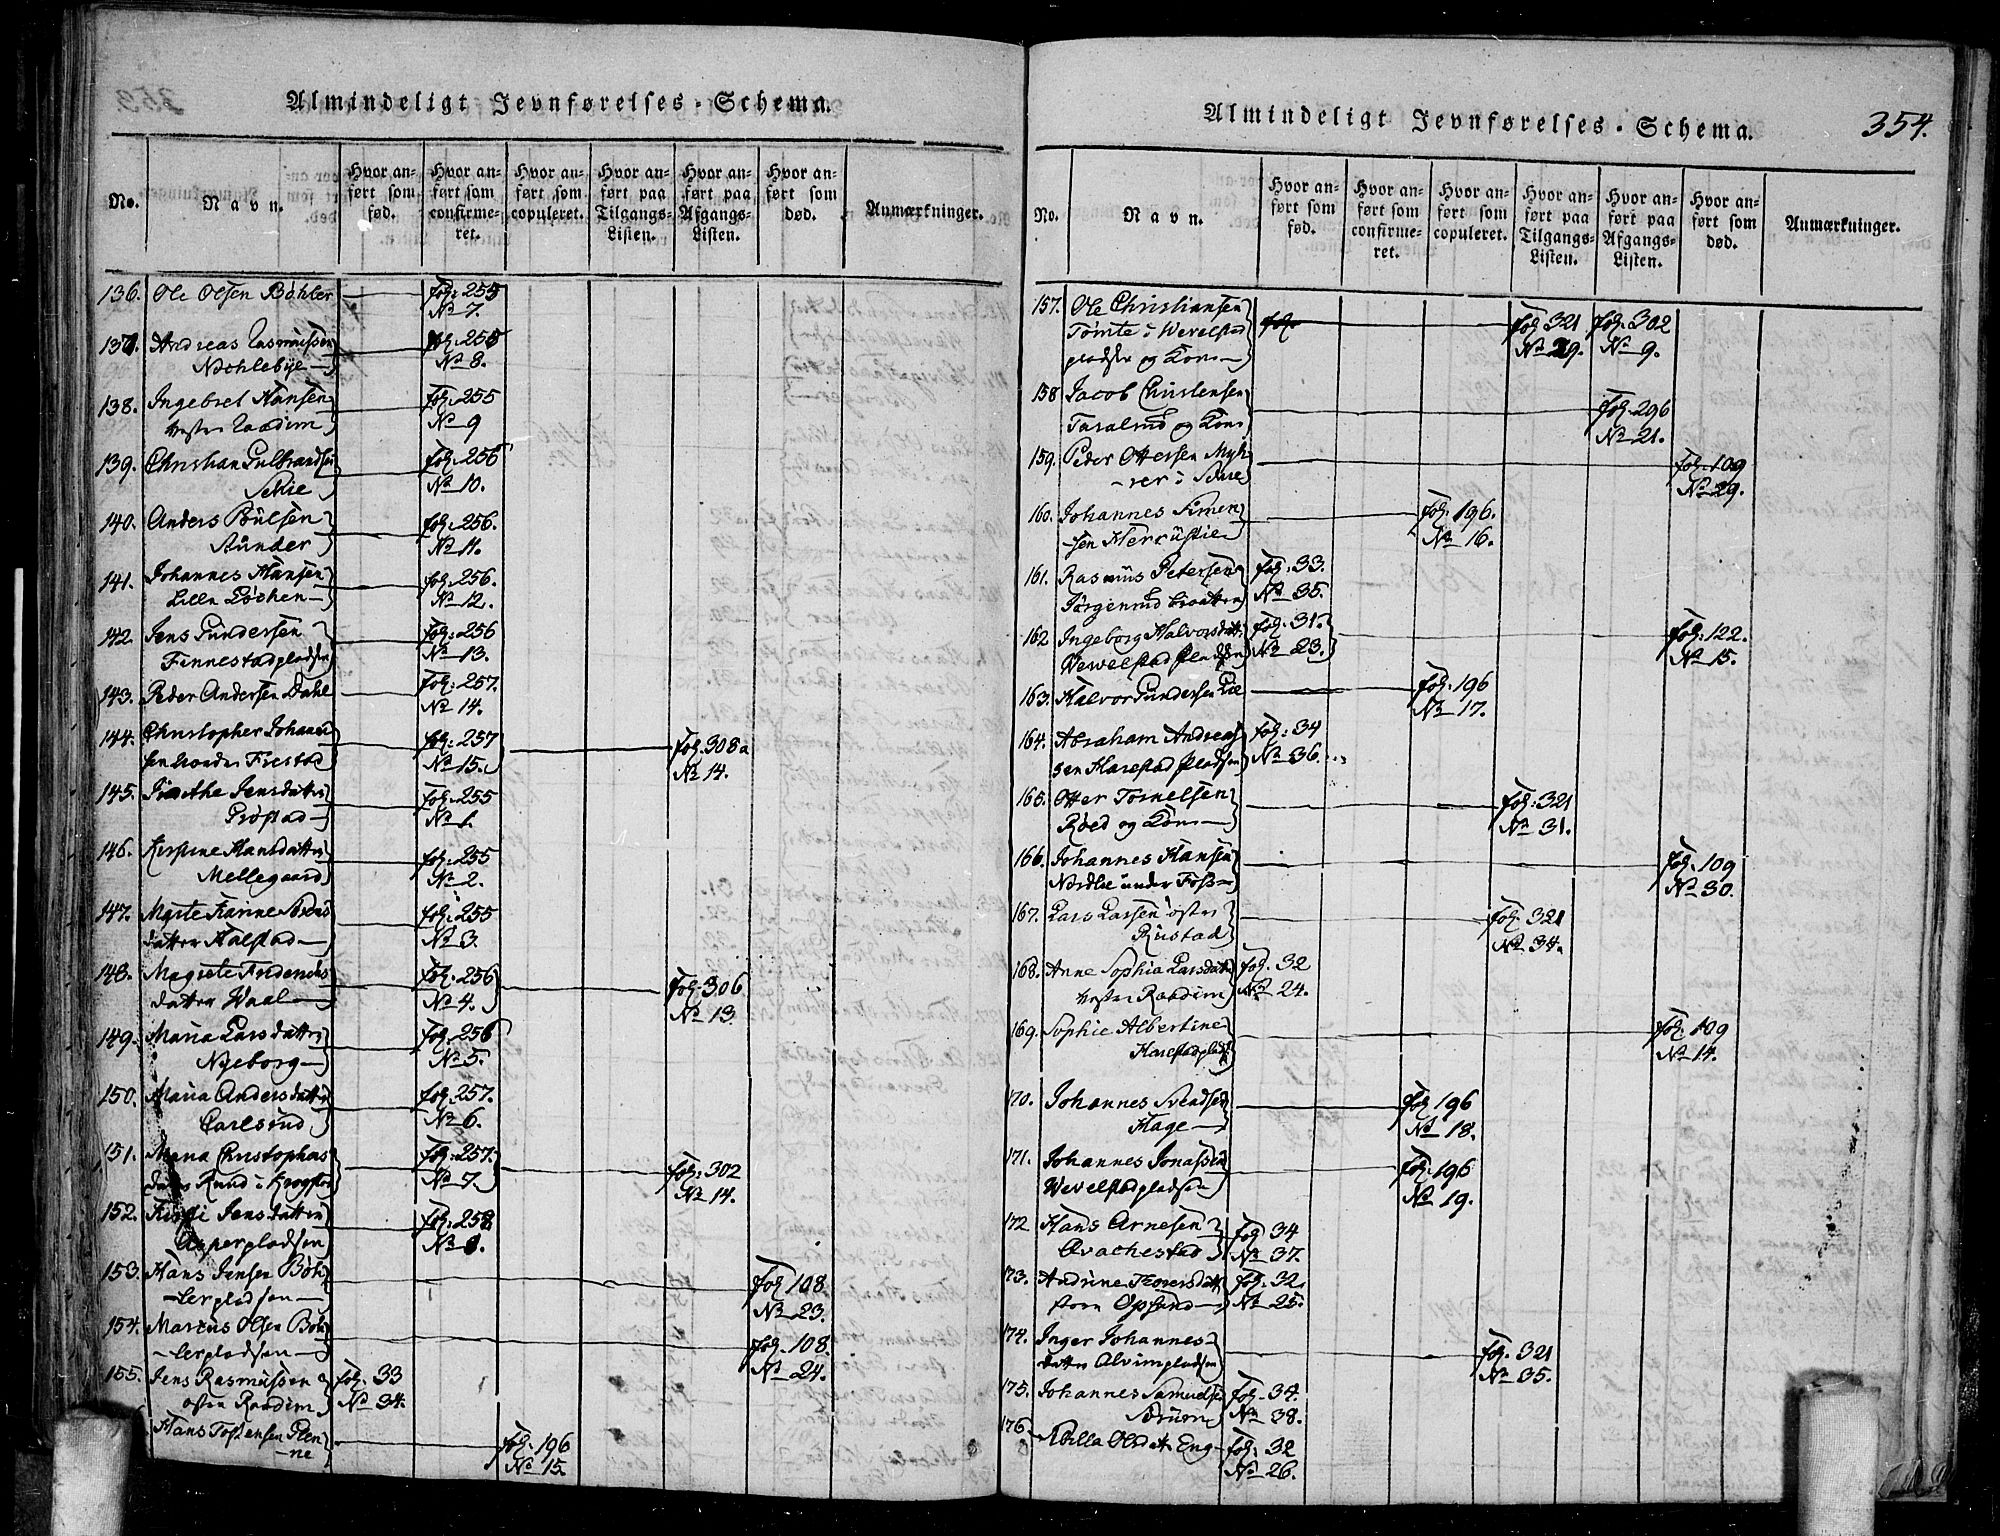 Almindeligt Jevnførelses-Schema.
No.
Navn.
Hvor anført som fød.
Hvor anført som confirmeret.
Hvor anført som copuleret.
Hvor anført paa Tilgangs-Listen.
Hvor anført paa Afgangs-Listen.
Hvor anført som død.
Anmærkninger.
136. Ole Olsen Bøhler fol: 255
No 7.
137. Andreas Rasmussen fol. 255
Nohlebye No 8.
138. Ingebret Hansen fol: 255
vestre Raadim No 9
139. Christian Gulbrandsen fol: 256
Schie No 10.
140. Anders Poulsen fol: 256.
Aunder No 11.
141. Johannes Hansen fol: 256.
Lille Løchen No 12.
142. Jens Gundersen fol: 256
Finnestadpladsen No 13.
143. Peder Andersen Dahl fol: 257.
No 14.
144. Christopher Johann fol: 257 fol. 308a
sen No 15. No 14.
145. Jensdatter fol: 255
No 1.
146. Kirstine Hansdatter fol: 255
Mellegaard No 2.
147. Marte Karine fol: 255
datter Halstad No 3.
148. Magrete fol: 256 fol: 306
datter Waal No 4. No 13.
149. Maria Larsdatter fol: 256
Nyeborg No 5.
150. Maria Andersdatter fol: 257.
Carlsrud No 6.
151. Maria Christophers fol: 257. fol: 302
datter Rund i No 7. No 14.
152. Jensdatter fol: 258
Asperpladsen No
153. Hans Jensen Bøh fol: 108.
-lerpladsen No 23.
154. Marcus Olsen Bøh fol: 108.
-lerpladsen No 24.
155. Jens Rasmussen fol: 33
østre Raadim No 34.
Hans Tostensen Glen fol: 196
ne No 15.
Almindeligt Jevnførelses-Schema.
354.
No.
Navn.
Hvor anført som fød.
Hvor anført som confirmeret.
Hvor anført som copuleret.
Hvor anført paa Tilgangs-Listen.
Hvor anført paa Afgangs-Listen.
Hvor anført som død.
Anmærkninger.
157. Ole Christiansen
Tomte i Wevelstad fol. fol: 321 fol: 302
pladsen og Kone No 29. No 9.
158 Jacob Christensen fol: 296
Taralrud og Kone No 21.
159. Peder Ottersen Myh fol: 109
-rer i Schie No 29.
160. Johannes Simen fol: 196.
-sen No 16.
161. Rasmus Petersen fol: 33.
Jørgenrud braatten No 35.
162. Ingeborg Halvorsdatter fol: 31. fol: 122.
Wevelstad Pladsen No 23. No 15.
163. Halvor Gundersen Lie fol: 196
No 17.
164. Abraham Andreas fol: 34
sen Harestad Pladsen No 36.
165. Otter Tornelsen fol: 321
Røed og Kone No 31.
166. Johannes Hansen fol: 109
Nordlie under Foss No 30.
167. Lars Larsen østre fol: 321
Rustad No 34.
168. Anne Sophia Larsdatter fol: 32
vestre Raadim No 24.
169. Sophie Albertine fol: 109
Harestadplads No 14.
170. Johannes Svendsen fol: 196
Hage No 18.
171. Johannes Jonassen fol: 196
Wevelstadpladsen No 19.
172 Hans Arnesen fol: 34
Avachestad No 37.
173. Andrine Torersdatter fol: 32.
store Opsand No 25.
174. Inger Johannes fol: 321
datter Alvimpladsen No 35.
175. Johannes Samuelsen fol: 34.
Sørum No 38.
176. Sibilla Olsdatter Eng fol: 32
No 26.